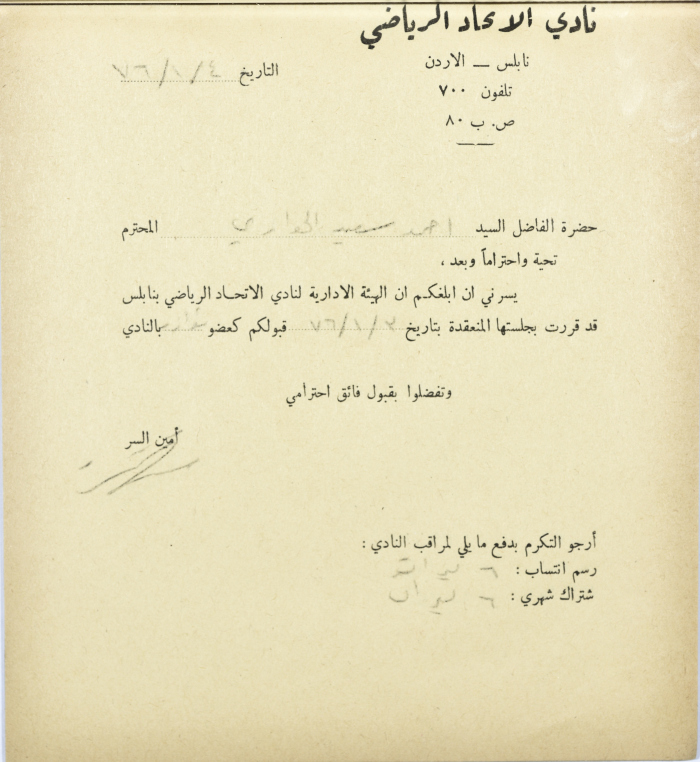 نادي الاتحاد الرياضي
نابلس — الاردن
تلفون ٧٠٠
ص. ب ٨٠
التاريخ ٤/١/٧٦
حضرة الفاضل السيد احمد سعيد الحواري المحترم
تحية واحتراماً وبعد ،
يسرني ان ابلغكم ان الهيئة الادارية لنادي الاتحـاد الرياضي بنابلس
قد قررت بجلستها المنعقدة بتاريخ ٣/١/٧٦ قبولكم كعضو بالنادي
وتفضلوا بقبول فائق احترامي
أمين السر
أرجو التكرم بدفع ما يلي لمراقب النادي :
رسم انتساب :
شتراك شهري :